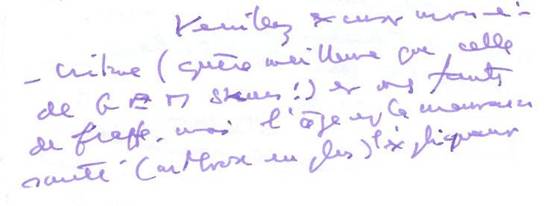 Veuillez excuser mon é-
-criture (guère meilleure que celle
de) et mes fautes
de frappe, mais l'âge et la mauvaise
santé (arthrose en plus) l'expliquent